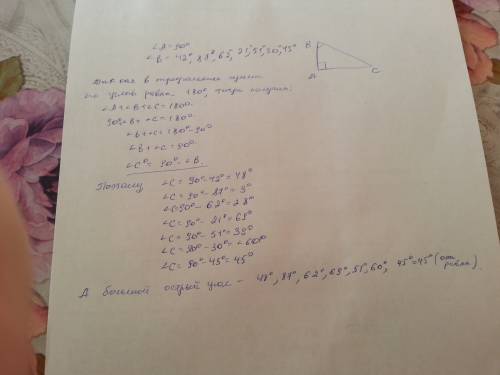 ∠A=90°
∠B = 42°, 87°, 62°, 21°, 51°, 30°, 45°
B
A
C
Так как в треугольнике сумма
углов равна 180°, тогда получим:
∠A+∠B+∠C=180°
90°+∠B+∠C=180°
∠B+∠C=180°-90°
∠B+∠C=90°
∠C=90°-∠B.
Поэтому
∠C=90°-42°=48°
∠C=90°-87°=3°
∠C=90°-62°=28°
∠C=90°-21°=69°
∠C=90°-51°=39°
∠C=90°-30°=60°
∠C=90°-45°=45°
А больший острый угол - 48°, 87°, 62°, 69°, 51°, 60°, 45°=45° (они равны).